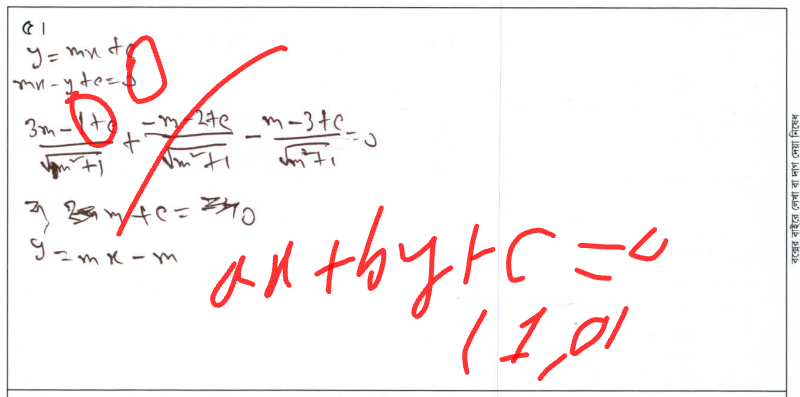 ৫।
y = mx + c
mx - y + c = 0
(3m - 1 + c)/√(m²+1) + (-m - 2 + c)/√(m²+1) - (m - 3 + c)/√(m²+1) = 0
⇒ m + c = 0
y = mx - m
ax + by + c = 0
(1,0)
বক্সের বাইরে লেখা বা দাগ দেয়া নিষেধ